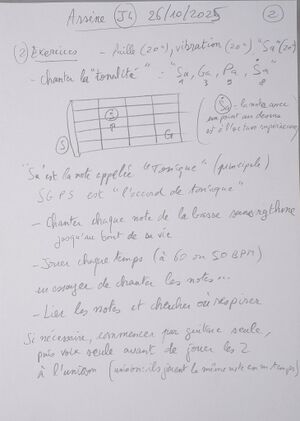 Assine J4 26/10/2025 2
2 Exercices - Paille (20''), vibration (20''), "Sa" (20'')
- Chanter la "tonalité" : "Sa, Ga, Pa, Sa"
1 3 5 8
(Sa - la note avec
un point au dessus
est à l'octave supérieure)
P
S G
"Sa" est la note appelée "Tonique" (principale)
SGPS est "l'accord de tonique"
- Chanter chaque note de la basse sans rythme
jusqu'au bout de sa vie
- Jouer chaque temps (à 60 ou 50 BPM)
en essayer de chanter les notes...
- Lier les notes et chercher où respirer
Si nécessaire, commencer par guitare seule,
puis voix seule avant de jouer les 2
à l'unisson (unisson: ils jouent la même note en m temps)